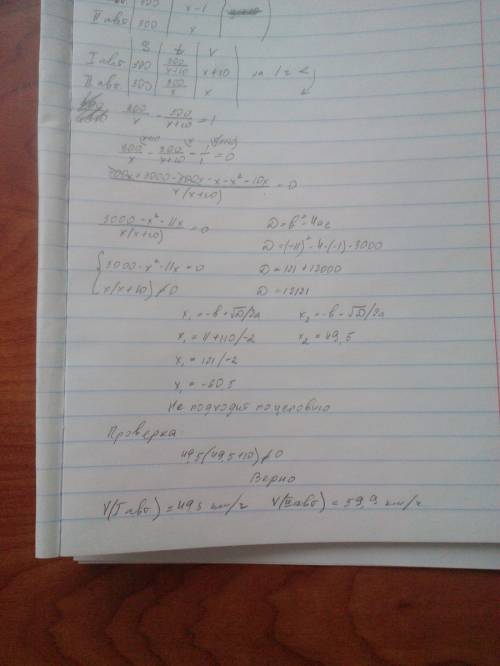 II авто 300 x x-1
S t V
I авт 300 300/x+10 x+10 на 1 ч <
II авт 300 300/x x
300/x - 300/x+10 = 1
300/x - 300/x+10 - 1/1 = 0
300x+3000-300x-x-x²-10x / x(x+10) = 0
3000-x²-11x / x(x+10) = 0 D=b²-4ac
D=(-11)²-4·(-1)·3000
{ 3000-x²-11x=0 D=121+12000
x(x+10)≠0 D=12121
x₁=-b+√D/2a x₂=-b-√D/2a
x₁=11+110/-2 x₂=49,5
x₁=121/-2
x₁=-60,5
Не подходит по условию
Проверка
49,5(49,5+10)≠0
Верно
V(I авт)=49,5 км/ч V(II авт)=59,9 км/ч